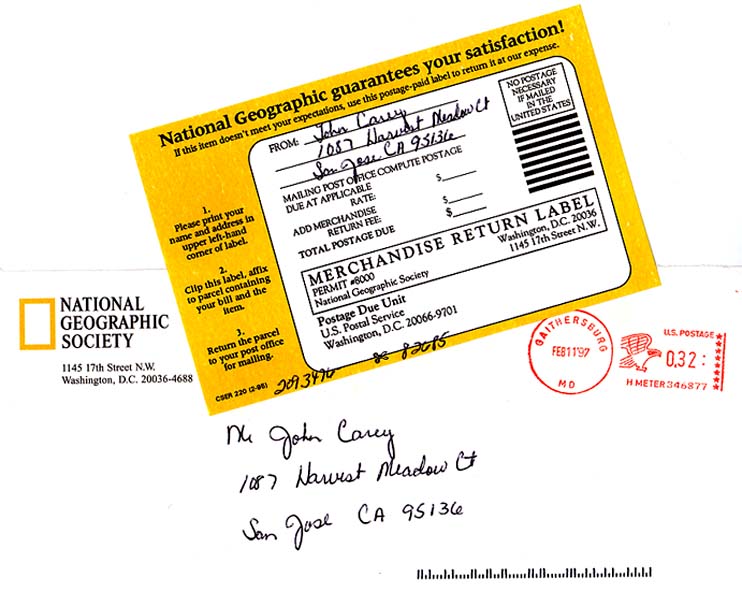 National Geographic guarantees your satisfaction!
If this item doesn't meet your expectations, use this postage-paid label to return it at our expense.
FROM: John Carey
1087 Harvest Meadow Ct
San Jose CA 95136
NO POSTAGE
NECESSARY
IF MAILED
IN THE
UNITED STATES
MAILING POST OFFICE COMPUTE POSTAGE
DUE AT APPLICABLE
RATE: $
ADD MERCHANDISE
RETURN FEE: $
TOTAL POSTAGE DUE $
MERCHANDISE RETURN LABEL
PERMIT #6000 Washington, D.C. 20036
National Geographic Society 1145 17th Street N.W.
Postage Due Unit
U.S. Postal Service
Washington, D.C. 20066-9701
1.
Please print your
name and address in
upper left-hand
corner of label.
2.
Clip this label, affix
to parcel containing
your bill and the
item.
3.
Return the parcel
to your post office
for mailing.
CSER 220 (2-96)
2093496 82685
NATIONAL
GEOGRAPHIC
SOCIETY
1145 17th Street N.W.
Washington, D.C. 20036-4688
GAITHERSBURG
FEB11'97
MD
U.S. POSTAGE
0.32
H METER 346877
Mr John Carey
1087 Harvest Meadow Ct
San Jose CA 95136